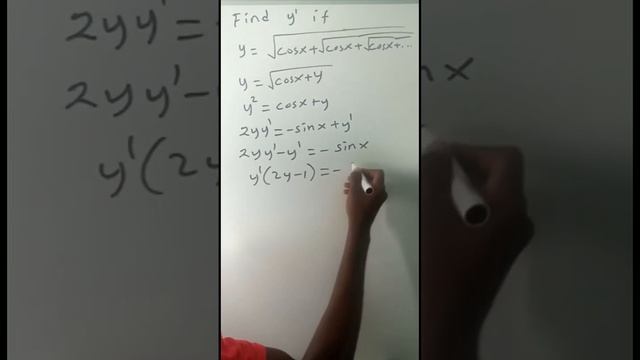 Find y' if
y = √cosx+√cosx+√cosx+...
y = √cosx+y
y² = cosx+y
2yy' = -sinx+y'
2yy'-y' = - sinx
y'(2y-1) = -